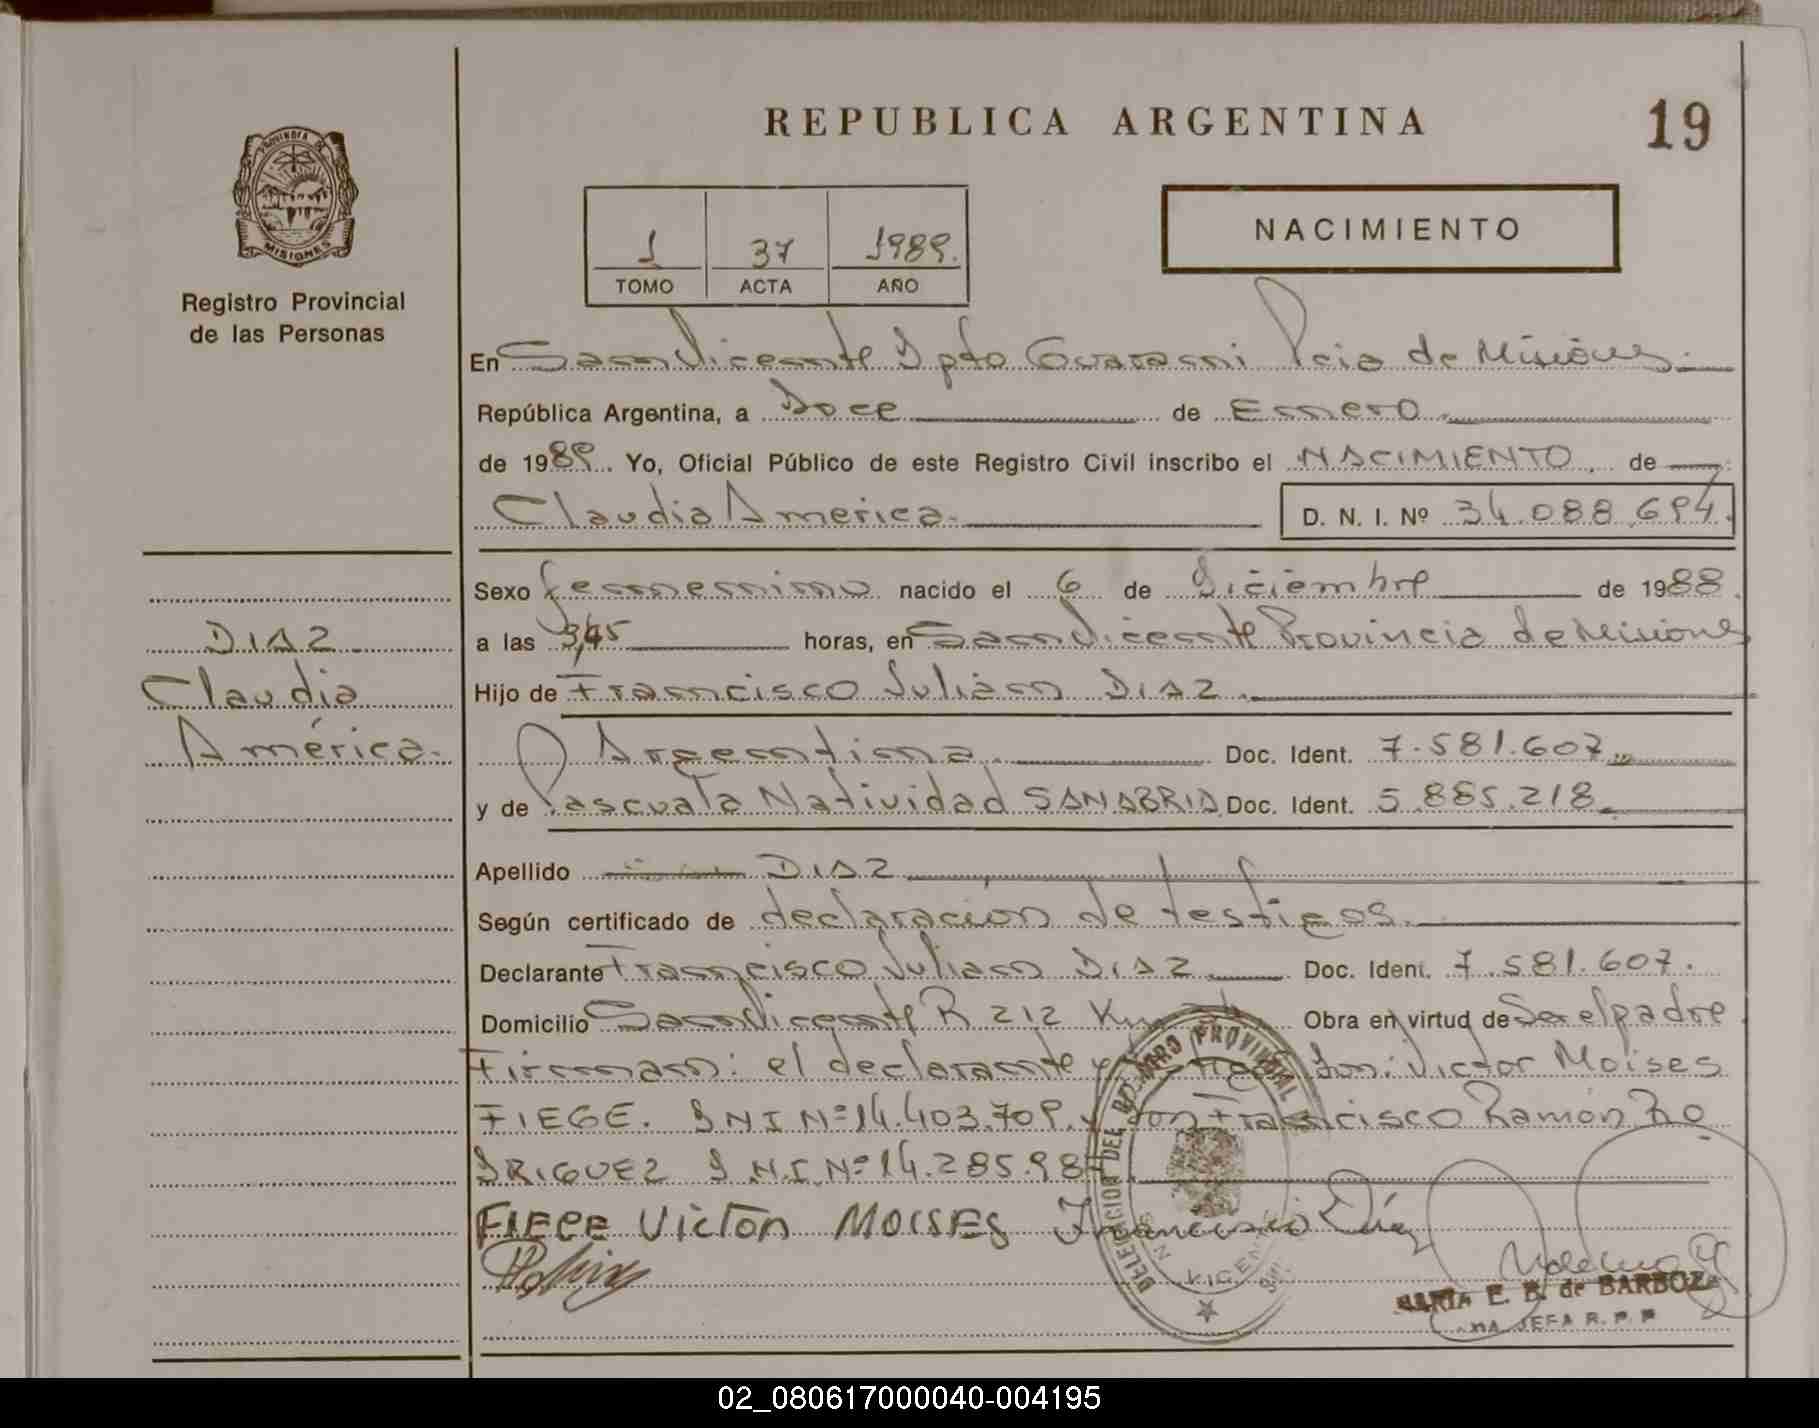 REPUBLICA ARGENTINA
19
PROVINCIA DE
MISIONES
Registro Provincial
de las Personas
1 37 1989.
TOMO ACTA AÑO
NACIMIENTO
En San Vicente Dpto Guarani Pcia de Misiones.
República Argentina, a Doce de Enero
de 1989. Yo, Oficial Público de este Registro Civil inscribo el NACIMIENTO de
Claudia America. D. N. I. Nº 34.088.694.
Sexo femenino nacido el 6 de Diciembre de 1988.
a las 3,45 horas, en San Vicente Provincia de Misiones
Hijo de Francisco Julian DIAZ
Argentina. Doc. Ident. 7.581.607
y de Pascuala Natividad SANABRIA Doc. Ident. 5.885.218
Apellido DIAZ
Según certificado de declaración de testigos.
Declarante Francisco Julian DIAZ Doc. Ident. 7.581.607.
Domicilio San Vicente R 212 Km Obra en virtud de Ser el padre
Firman: el declarante y Don: Victor Moises
FIEGE. DNI Nº 14.403.709 y Don Francisco Ramón RO
DRIGUEZ D.N.I. Nº 14.285.98
FIEGE VICTOR MOISES Francisco Díaz
MARIA E. B. de BARBOZA
JEFA R. P. P.
DIAZ
Claudia
América.
DELEGACION DEL REGISTRO PROVINCIAL
02_080617000040-004195